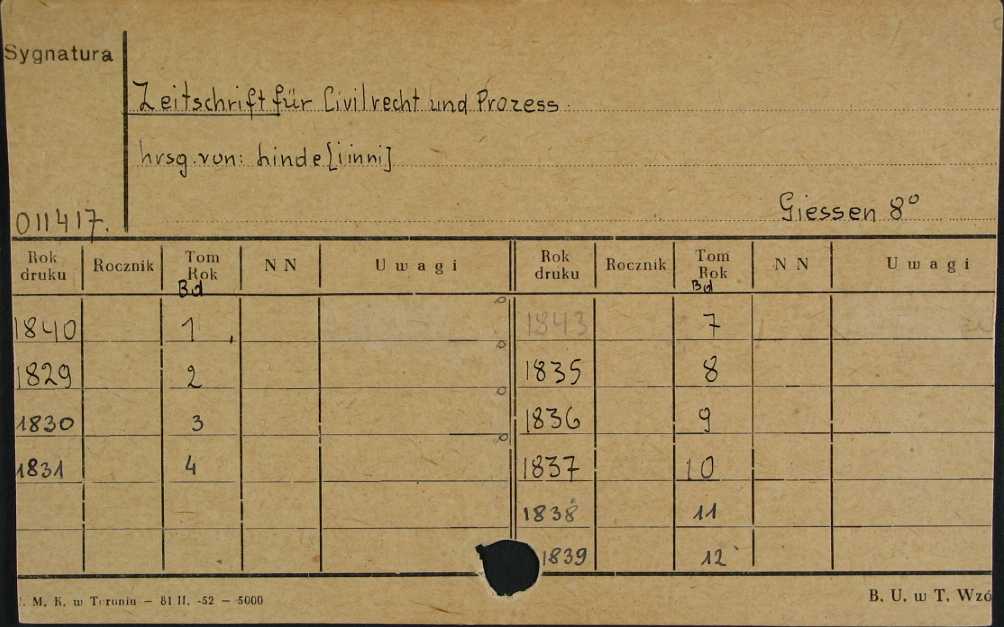 Sygnatura
Zeitschrift für Civilrecht und Prozess.
hrsg. von: Linde [i inni]
Giessen 8°
011417.
Rok druku Rocznik Tom Rok Bd NN Uwagi Rok druku Rocznik Tom Rok Bd NN Uwagi
1840 1 1843 7
1829 2 1835 8
1830 3 1836 9
1831 4 1837 10
1838 11
1839 12
. M. K. w Toruniu – 81 II. -52 – 5000
B. U. w T. Wzó